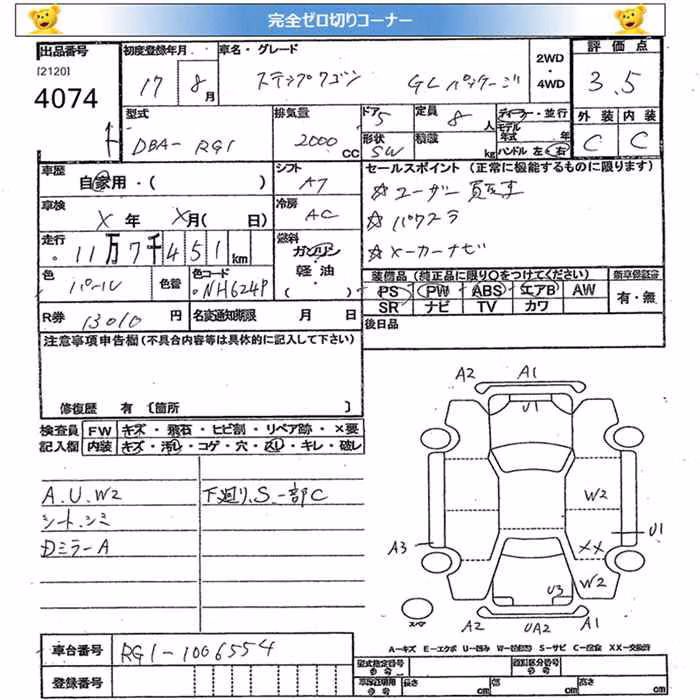 完全ゼロ切りコーナー
出品番号 初度登録年月 車名・グレード 2WD ・ 4WD 評価点
[2120]
4074 17 8月 ステップワゴン GLパッケージ 3.5
型式 排気量 ドア 5 定員 8人 ディーラー・並行 外装 内装
DBA-RG1 2000cc 形状 SW 積載 kg モデル年式 年 ハンドル 左・右 C C
車歴 シフト セールスポイント (正常に機能するものに限ります)
自家用・( ) AT ☆ユーザー買取車
車検 X年 X月( 日) 冷房 AC ☆パワスラ
走行 11万7千451km 燃料 ガソリン 軽油・( ) ☆メーカーナビ
色 パール 色替 色コード NH624P 装備品 (純正品に限り○をつけてください) 新車保証書
PS PW ABS エアB AW 有・無
SR ナビ TV カワ
R券 13010円 名変通知期限 月 日 後日品
注意事項申告欄 (不具合内容等は具体的に記入して下さい)
修復歴 有 〔箇所 〕
検査員記入欄 FW キズ・飛石・ヒビ割・リペア跡・×要
内装 キズ・汚れ・コゲ・穴・スレ・キレ・破レ
A.U.W2 下廻り、S、一部C
シート、シミ
Dミラー A
A2 A1
U1
W2
A3 U1
XX
W2
U3
スペア A2 UA2 A1
A-キズ E-エクボ U-凹み W- S-サビ C-腐食 XX-交換済
車台番号 RG1-1006554
登録番号
型式指定番号 参考 類別区分番号 参考
参考 長さ cm 幅 cm 高さ cm